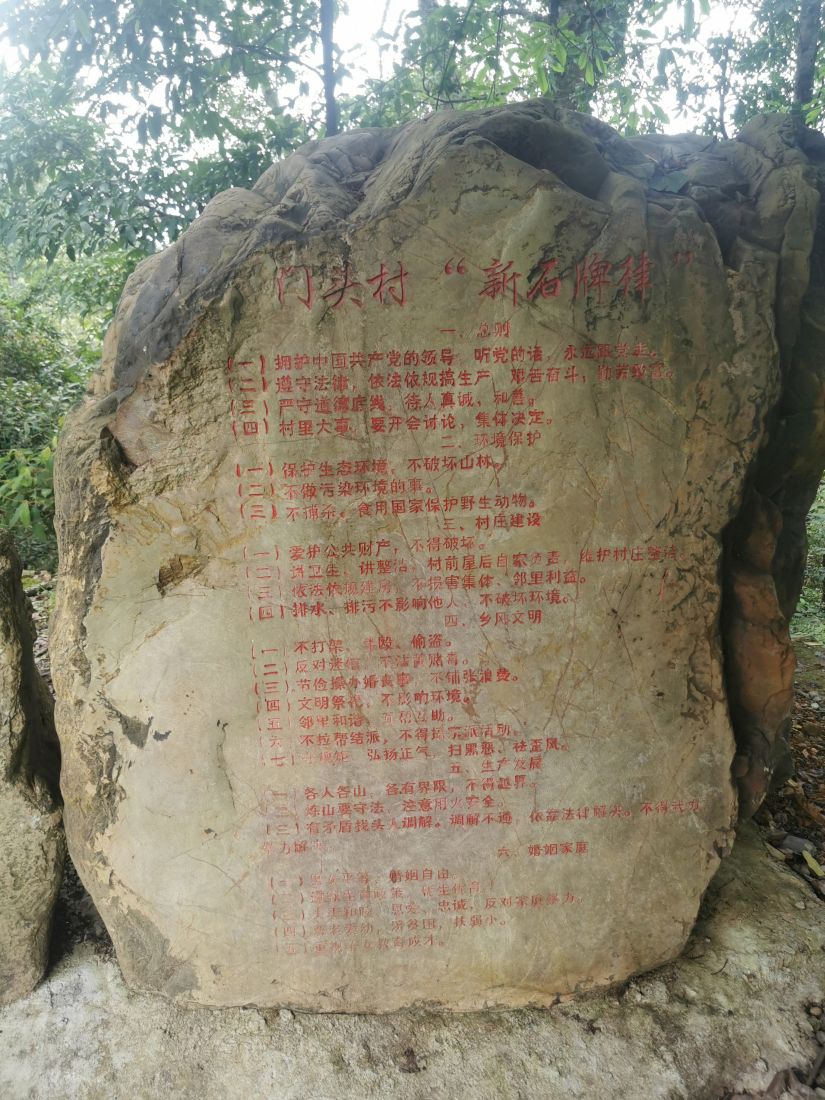 门头村“新石牌律”
一、总则
(一) 拥护中国共产党的领导，听党的话，永远跟党走。
(二) 遵守法律，依法依规搞生产，艰苦奋斗，勤劳致富。
(三) 严守道德底线，待人真诚，和善。
(四) 村里大事，要开会讨论，集体决定。
二、环境保护
(一) 保护生态环境，不破坏山林。
(二) 不做污染环境的事。
(三) 不捕杀。食用国家保护野生动物。
三、村庄建设
(一) 爱护公共财产，不得破坏。
(二) 讲卫生、讲整洁，村前屋后自家负责，维护村庄整洁。
(三) 依法依规建房，不损害集体、邻里利益。
(四) 排水、排污不影响他人，不破坏环境。
四、乡风文明
(一) 不打架、斗殴、偷盗。
(二) 反对迷信，不沾黄赌毒。
(三) 节俭操办婚丧事，不铺张浪费。
(四) 文明祭祀，不影响环境。
(五) 邻里和谐，互帮互助。
(六) 不拉帮结派，不得搞宗派活动。
(七) 规矩，弘扬正气，扫黑恶，祛歪风。
五、生产发展
(一) 各人各山，各有界限，不得越界。
(二) 炼山要守法，注意用火安全。
(三) 有矛盾找头人调解。调解不通，依靠法律解决。不得武力
暴力解决。
六、婚姻家庭
(一) 男女平等，婚姻自由。
(二) 生育政策，优生优育。
(三) 夫妻和睦，恩爱、忠诚，反对家庭暴力。
(四) 养老爱幼，济贫困，扶弱小。
(五) 重视子女教育成才。